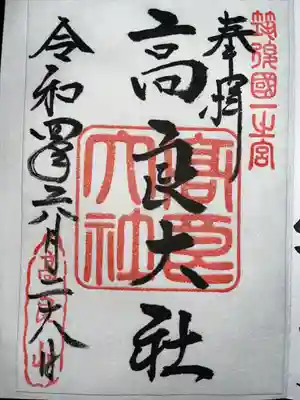 筑後國一之宮
奉拝
高良大社
高良大社
令和四年八月二十八日